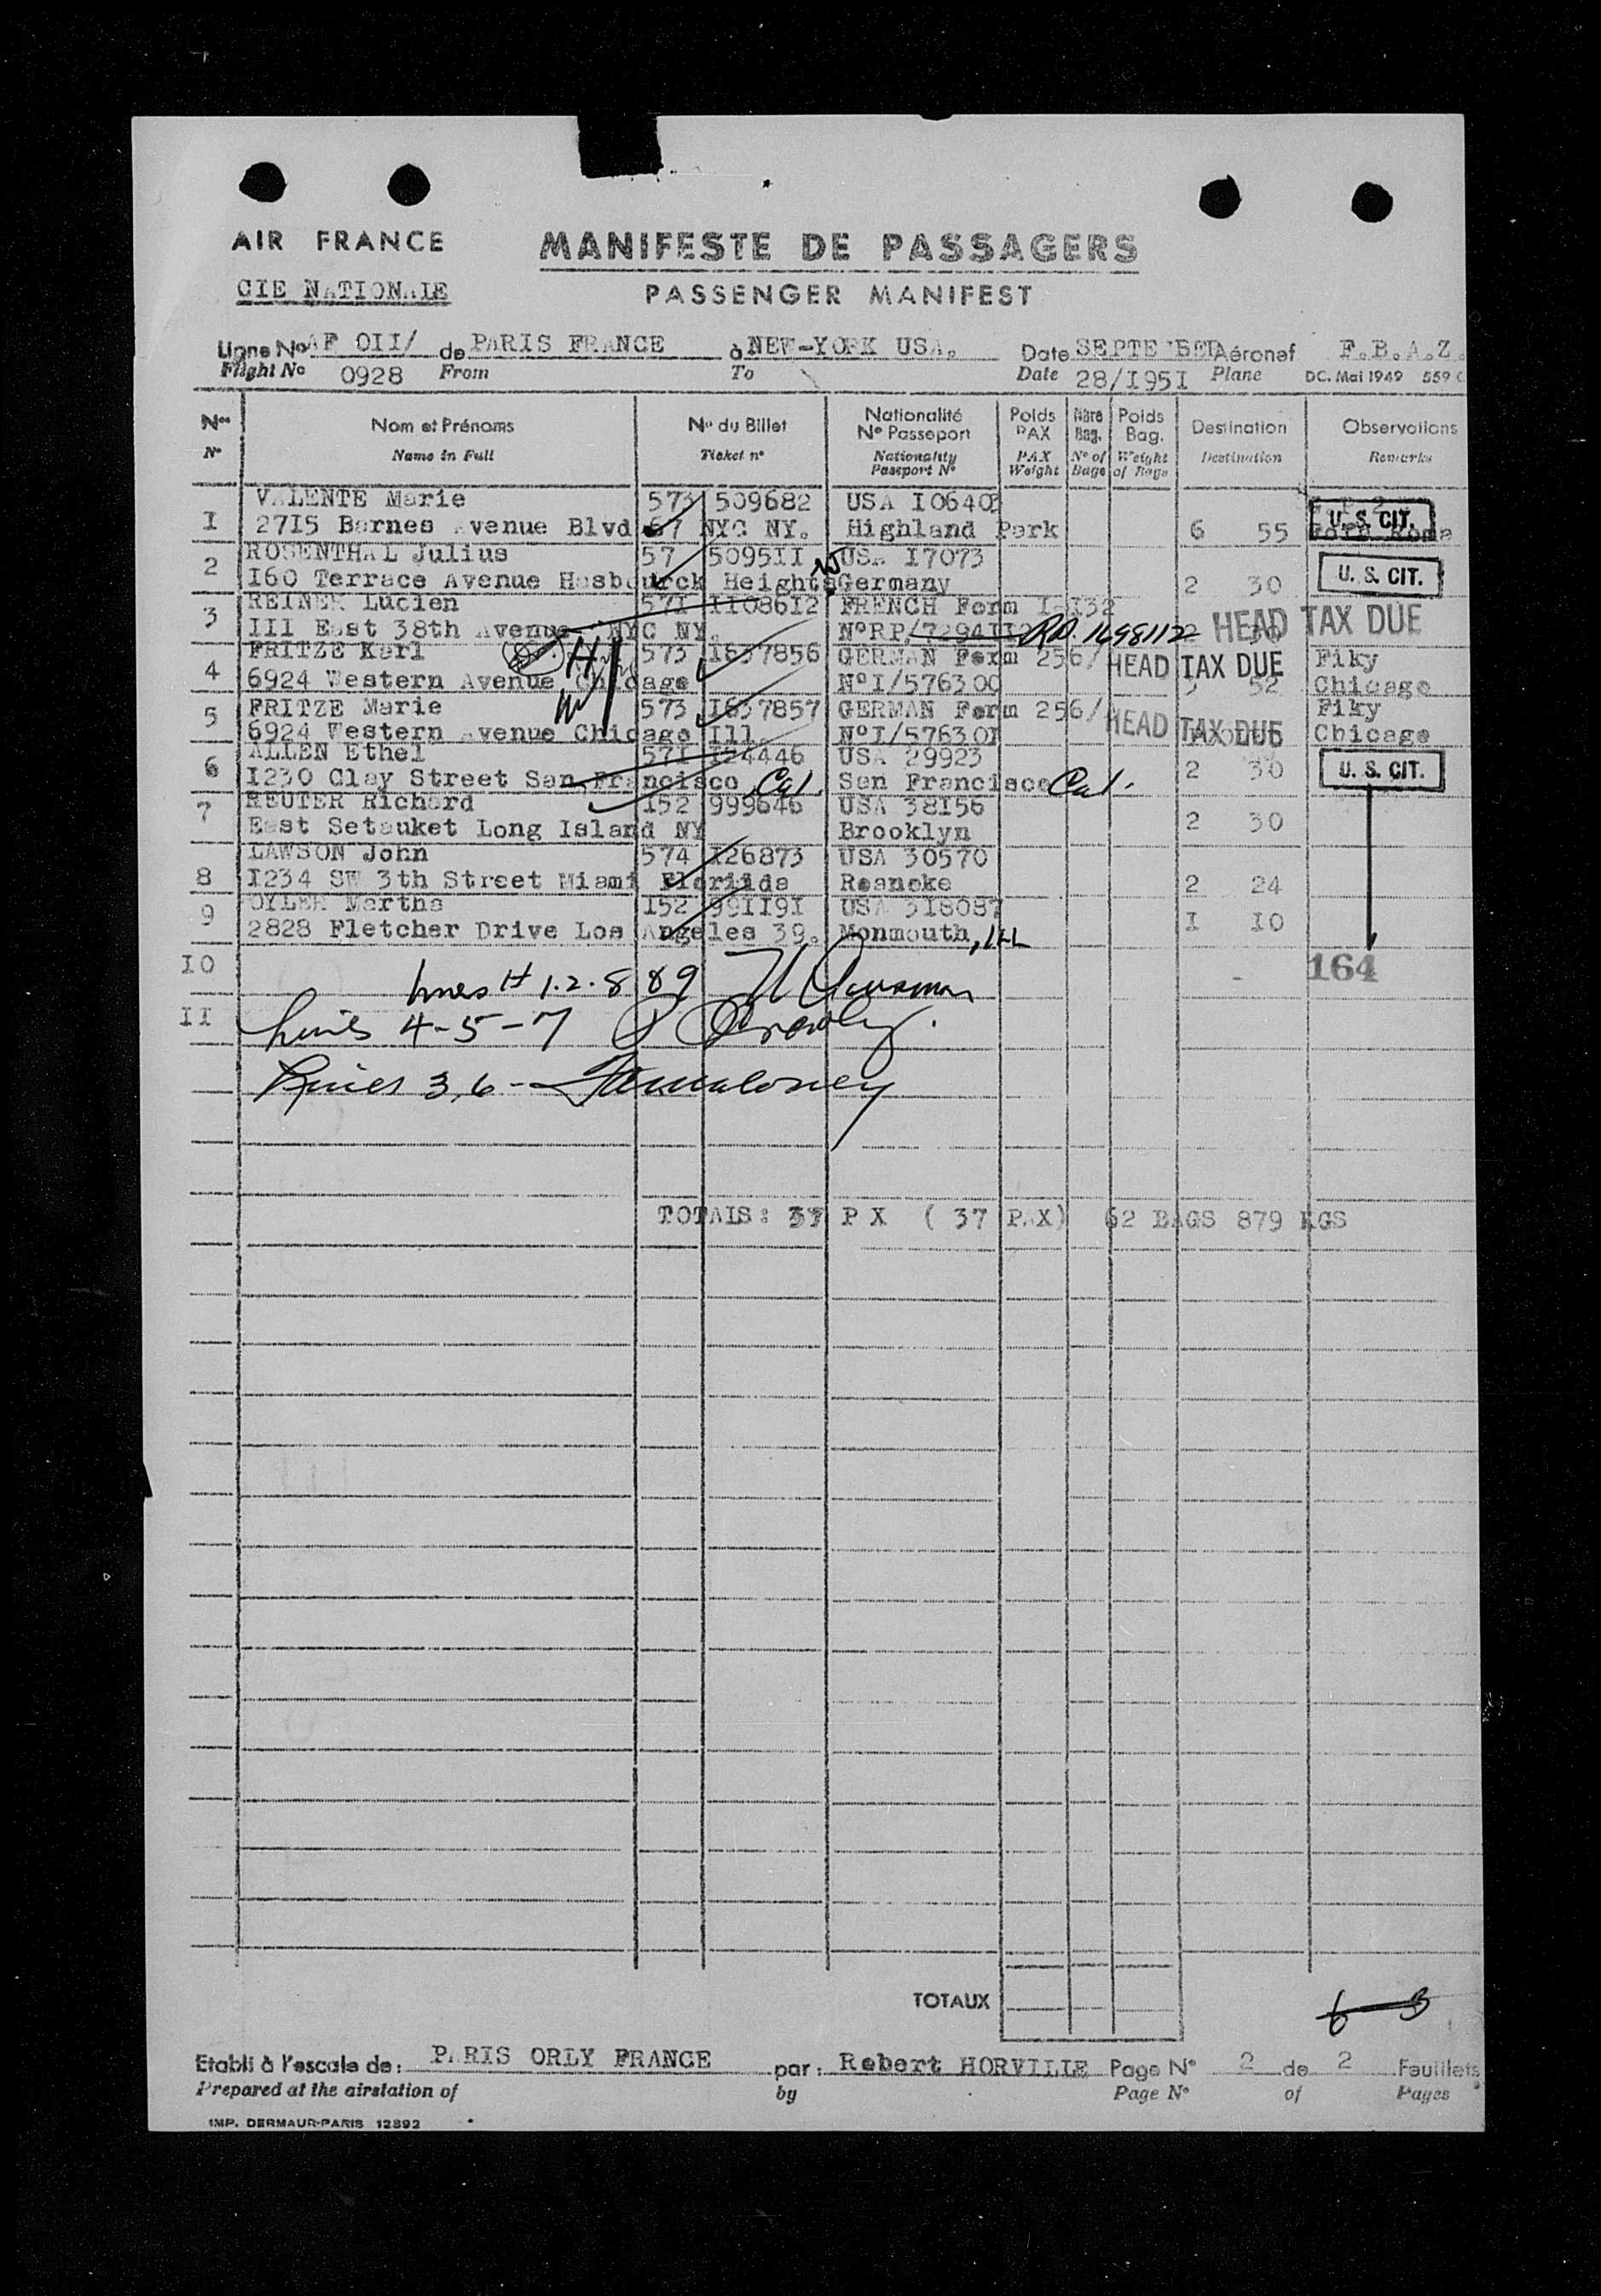 AIR FRANCE
MANIFESTE DE PASSAGERS
CIE NATIONALE
PASSENGER MANIFEST
Ligne No AF OII/ de PARIS FRANCE à NEW-YORK USA. Date SEPTE BER Aéronef F.B.A.Z.
Flight No 0928 From To Date 28/I95I Plane DC. Mai 1949 559
Nos Nom et Prénoms No du Billet Nationalité No Passeport Poids PAX Nbre Bag. Poids Bag. Destination Observations
No Name in Full Ticket no Nationality Passport No PAX Weight No of Bags Weight of Bags Destination Remarks
VALENTE Marie 573 509682 USA I06403
I 27I5 Barnes Avenue Blvd 67 NYC NY. Highland Park 6 55 U. S. CIT.
ROSENTHAL Julius 57 5095II USA I7073
2 I60 Terrace Avenue Hasbourck Heights NJ Germany 2 30 U. S. CIT.
REINER Lucien 57I II086I2 FRENCH Form I-I32
3 III East 38th Avenue NYC NY. No RP/72941I2 RP. 1698112 2 30 HEAD TAX DUE
FRITZE Karl 573 I637856 GERMAN Form 256/ HEAD TAX DUE Fiky
4 6924 Western Avenue Chicago No I/576300 3 52 Chicago
FRITZE Marie 573 I637857 GERMAN Form 256/ HEAD TAX DUE Fiky
5 6924 Western Avenue Chicago Ill. No I/57630I Chicago
ALLEN Ethel 57I I24446 USA 29923
6 I230 Clay Street San Francisco Cal. San Francisco Cal. 2 30 U. S. CIT.
REUTER Richard I52 999646 USA 38I56
7 East Setauket Long Island NY Brooklyn 2 30
LAWSON John 574 I26873 USA 30570
8 I234 SW 3th Street Miami Floriida Roanoke 2 24
OYLER Martha I52 99II9I USA 3I8087
9 2828 Fletcher Drive Los Angeles 39. Monmouth, ILL I IO
I0 164
lines # 1.2.8 & 9
II lines 4-5-7
Lines 3,6 -
TOTAIS: 37 P X ( 37 PAX) 62 BAGS 879 KGS
TOTAUX
6 3
Etabli à l'escale de: PARIS ORLY FRANCE par: Robert HORVILLE Page No 2 de 2 Feuillets
Prepared at the airstation of by Page No of Pages
IMP. DERMAUR-PARIS 12892